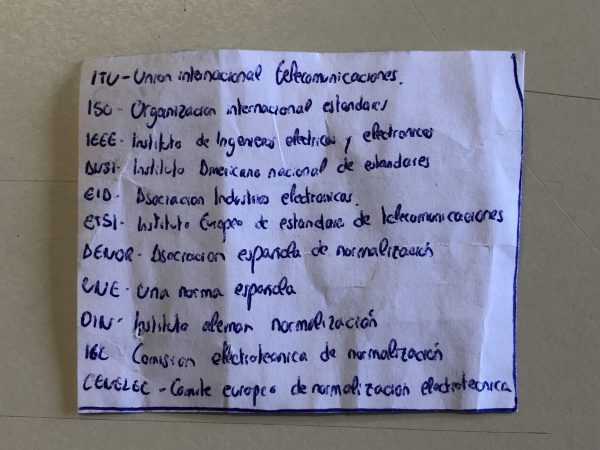 ITU - Union internacional telecomunicaciones.
ISO - Organización internacional estandars
IEEE - Instituto de Ingenieros electricos y electronicos
ANSI - Instituto Americano nacional de estandares
EIA - Asociacion Industrias electronicas.
ETSI - Instituto Europeo de estandares de telecomunicaciones
AENOR - Asociacion española de normalización
UNE - Una norma española
DIN - Instituto aleman normalización
IEC Comision electrotecnica de normalización
CENELEC - Comite europeo de normalizacion electrotecnica